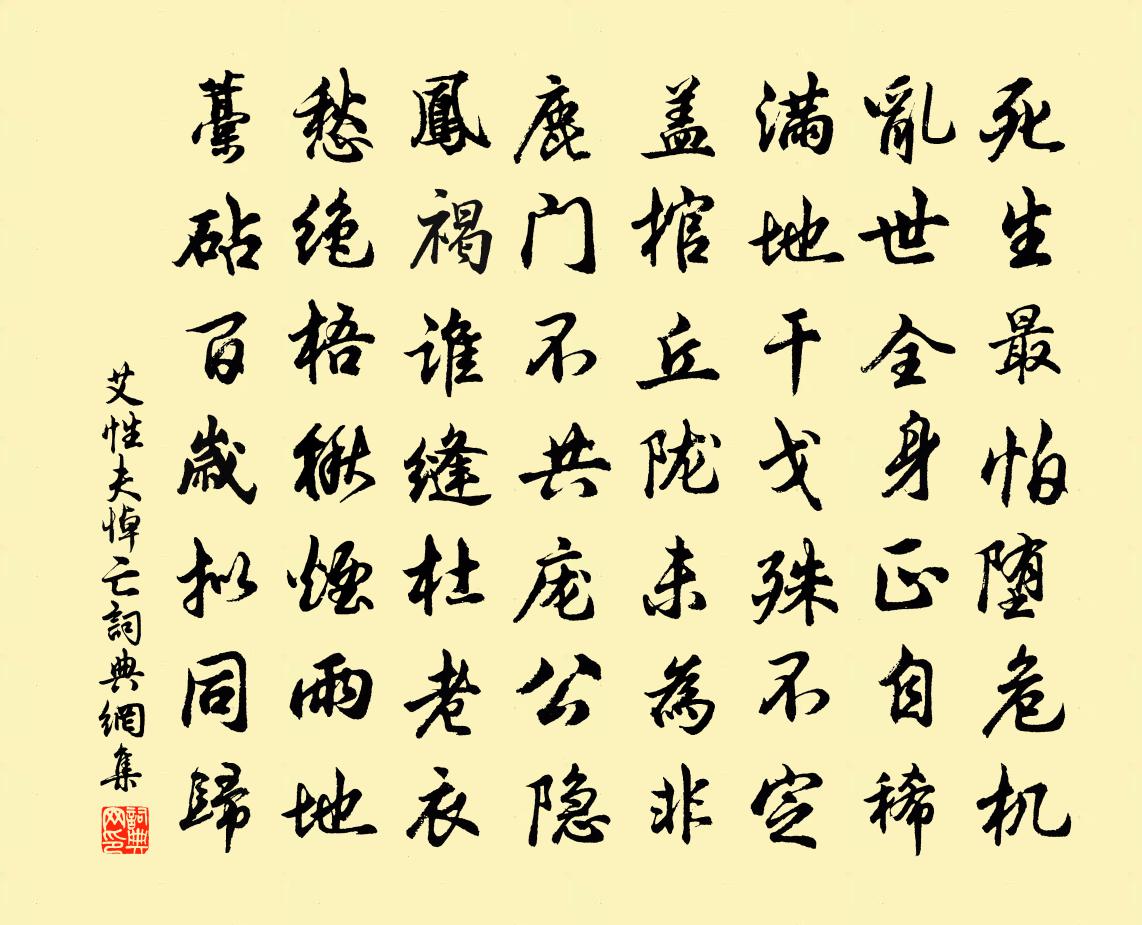 死生最怕堕危机
亂世全身正自稀
满地干戈殊不定
盖棺丘陇未為非
鹿门不共庞公隐
鳳褐谁缝杜老衣
愁绝梧楸煙雨地
藁砧百歲拟同歸
艾性夫悼亡詞典網集
詞典网印